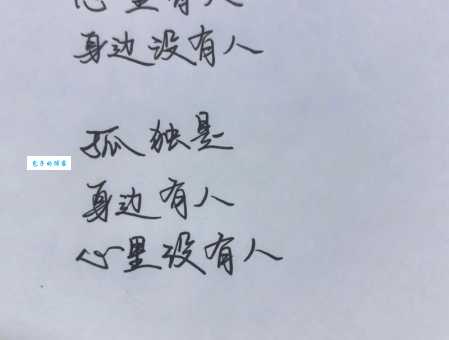 心里有人
身边没有人
孤独是
身边有人
心里没有人